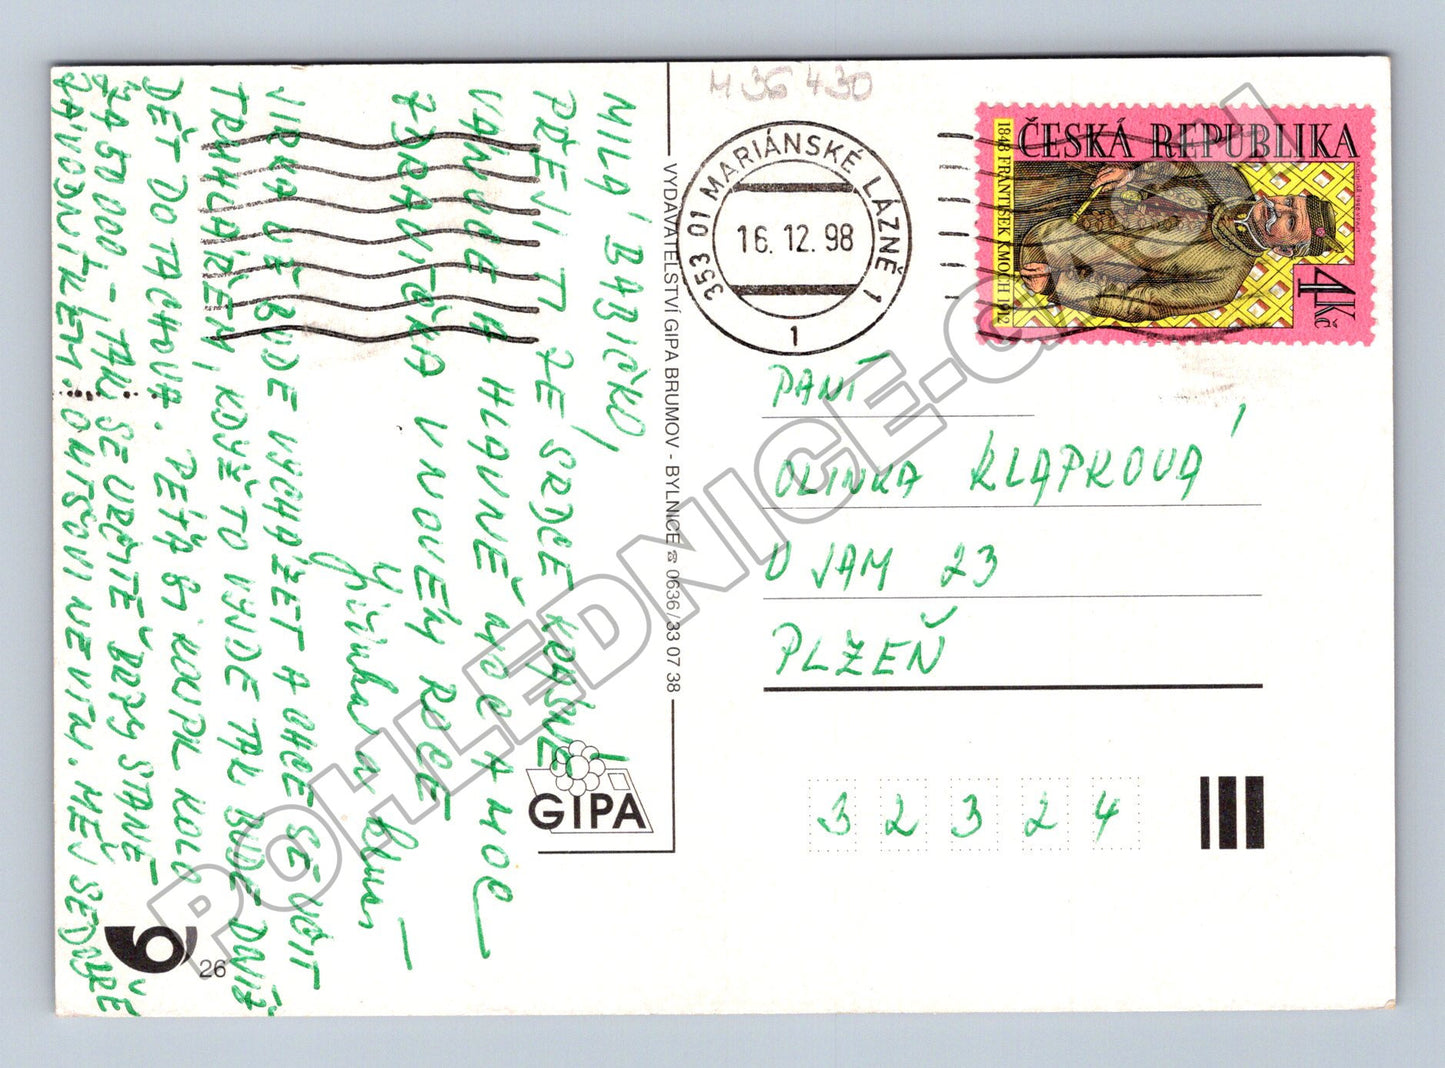 M36 430
MILÁ BABIČKO,
PŘEJI TI ZE SRDCE KRÁSNÉ
VÁNOCE A HLAVNĚ MOC A MOC
ZDRAVÍČKA V NOVÉM ROCE
Jiřinka a
JIRKA UČ BUDE VYCHÁZET A CHCE SE UČIT
TRUHLÁŘEM, KDYŽ TO VYJDE TAK BUDE DOJÍŽ
DĚT DO TACHOVA. PÉŤA BY KOUPIL KOLO
ZA 50 000,- TAK SE URČITĚ BRZY STANE
ZÁVODNÍKEM. O MÍŠOVI NEVÍM. MĚJ SE DOBŘE
VYDAVATELSTVÍ GIPA BRUMOV - BYLNICE ☎ 0636/33 07 38
GIPA
26
353 01 MARIÁNSKÉ LÁZNĚ 1
16.12.98
1
ČESKÁ REPUBLIKA
1848 FRANTIŠEK KMOCH 1912
4 Kč
PANÍ
OLINKA KLAPKOVÁ
U JAM 23
PLZEŇ
3 2 3 2 4
POHLEDNICE-CASU